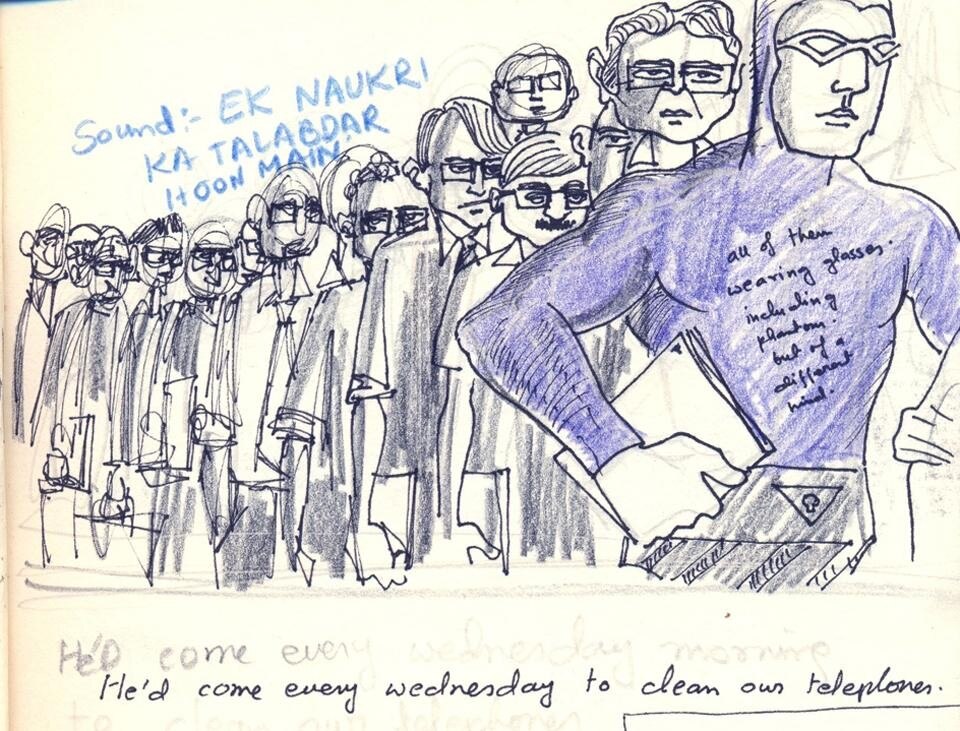 Sound:- EK NAUKRI
KA TALABDAR
HOON MAIN
all of them
wearing glasses.
including
phantom.
but of a
different
kind.
He'D come every wednesday morning
He'd come every wednesday to clean our telephones.
to clean our telephones